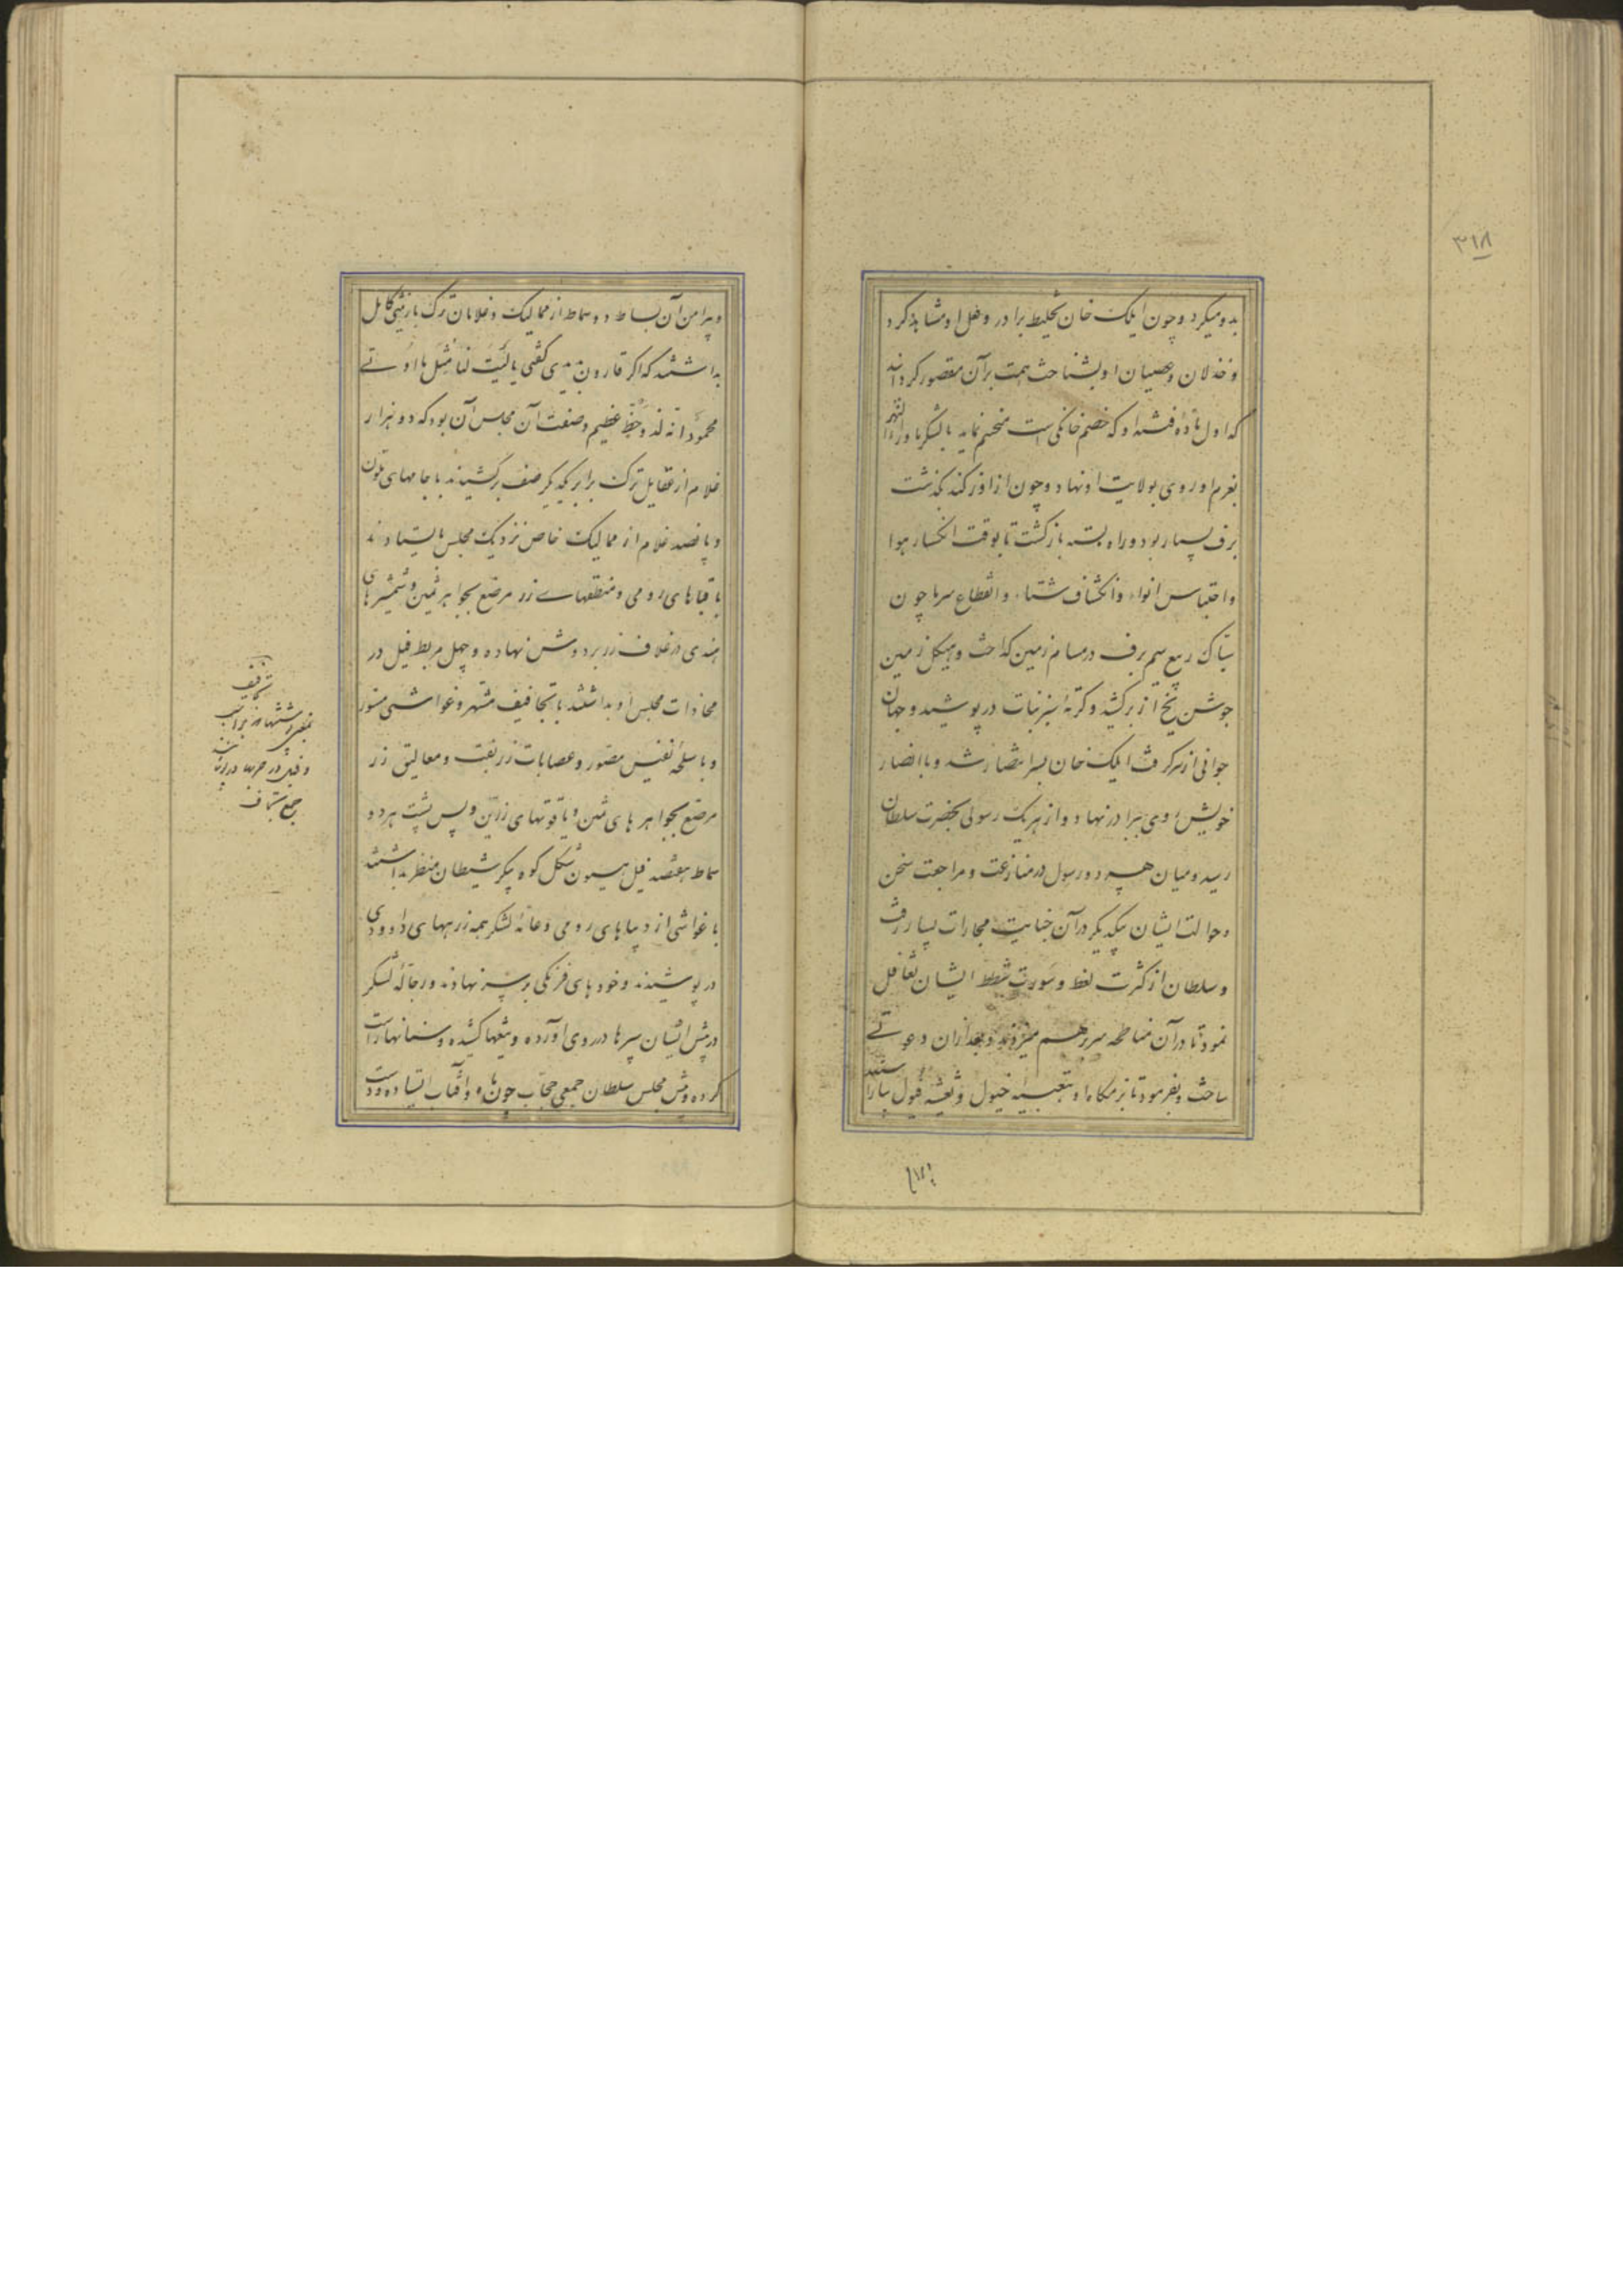 ۳۱۸
بدو میکرد و چون ایلک خان تخلیط برادر و غل او مشاهده کرد
و خذلان و عصیان او بشناخت همت بر آن مقصور کردانید
که اول ماده فتنه او که خصم خانکی است منحسم نماید با لشکر ماوراءالنهر
بعزم او روی بولایت او نهاد و چون از اوزکند بگذشت
برف بسیار بود و راه بسته بازگشت تا بوقت انکسار هوا
و احتباس انواء و انکشاف شتاء و انقطاع سرما چون
تباک ربیع سیم برف در مسام زمین کداخت و هیکل زمین
جوشن یخ از بر کشید و کرته سبز نبات در پوشید و جهان
جوانی از سر کرفت ایلک خان بسر انتصار شد و با انصار
خویش روی ببرادر نهاد و از هر یک رسولی بحضرت سلطان
رسید و میان هر دو رسول در منازعت و مراجعت سخن
و حوالت ایشان بیکدیکر در آن جنایت مجارات بسیار رفت
و سلطان از کثرت لغط و سورت شطط ایشان تغافل
نمود تا در آن مناطحه سر بر هم میزدند و بعد از آن دعوتی
ساخت و بفرمود تا بزمکاه او بتعبیه خیول و تغشیه فیول بیاراستند
و پیرامن آن بساط دو سماط از ممالیک و غلامان ترک با زینتی کامل
بداشتند که اکر قارون بدیدی کفتی یا لیت لنا مثل ما اوتی
محمود انه لذو حظ عظیم و صفت آن مجلس آن بود که دو هزار
غلام از عقایل ترک برابر یکدیکر صف برکشیدند با جامهای ملون
و پانصد غلام از ممالیک خاص نزدیک مجلس بایستادند
با قباهای رومی و منطقهای زر مرصع بجواهر ثمین و شمشیرهای
هندی در غلاف زر بر دوش نهاده و چهل مربط فیل در
محاذات مجلس او بداشتند با تجافیف مشهر و غواشی مستور
و باسلحه نفیس مصور و عصابات زربفت و معالیق زر
مرصع بجواهر های ثمین و یاقوتهای زرین و پس پشت هر دو
سماط هفتصد فیل هیون شکل کوه پیکر شیطان منظر بداشتند
با غواشی از دیباهای رومی و عامه لشکر همه زرههای داوودی
در پوشیدند و خودهای فرنکی بر سر نهادند و رجاله لشکر
در پیش ایشان سپرها در روی آورده و تیغها کشیده و سنانها راست
کرده و پیش مجلس سلطان جمعی حجاب چون ماه و آفتاب ایستاده و دست
تجافیف
جمع تجفاف